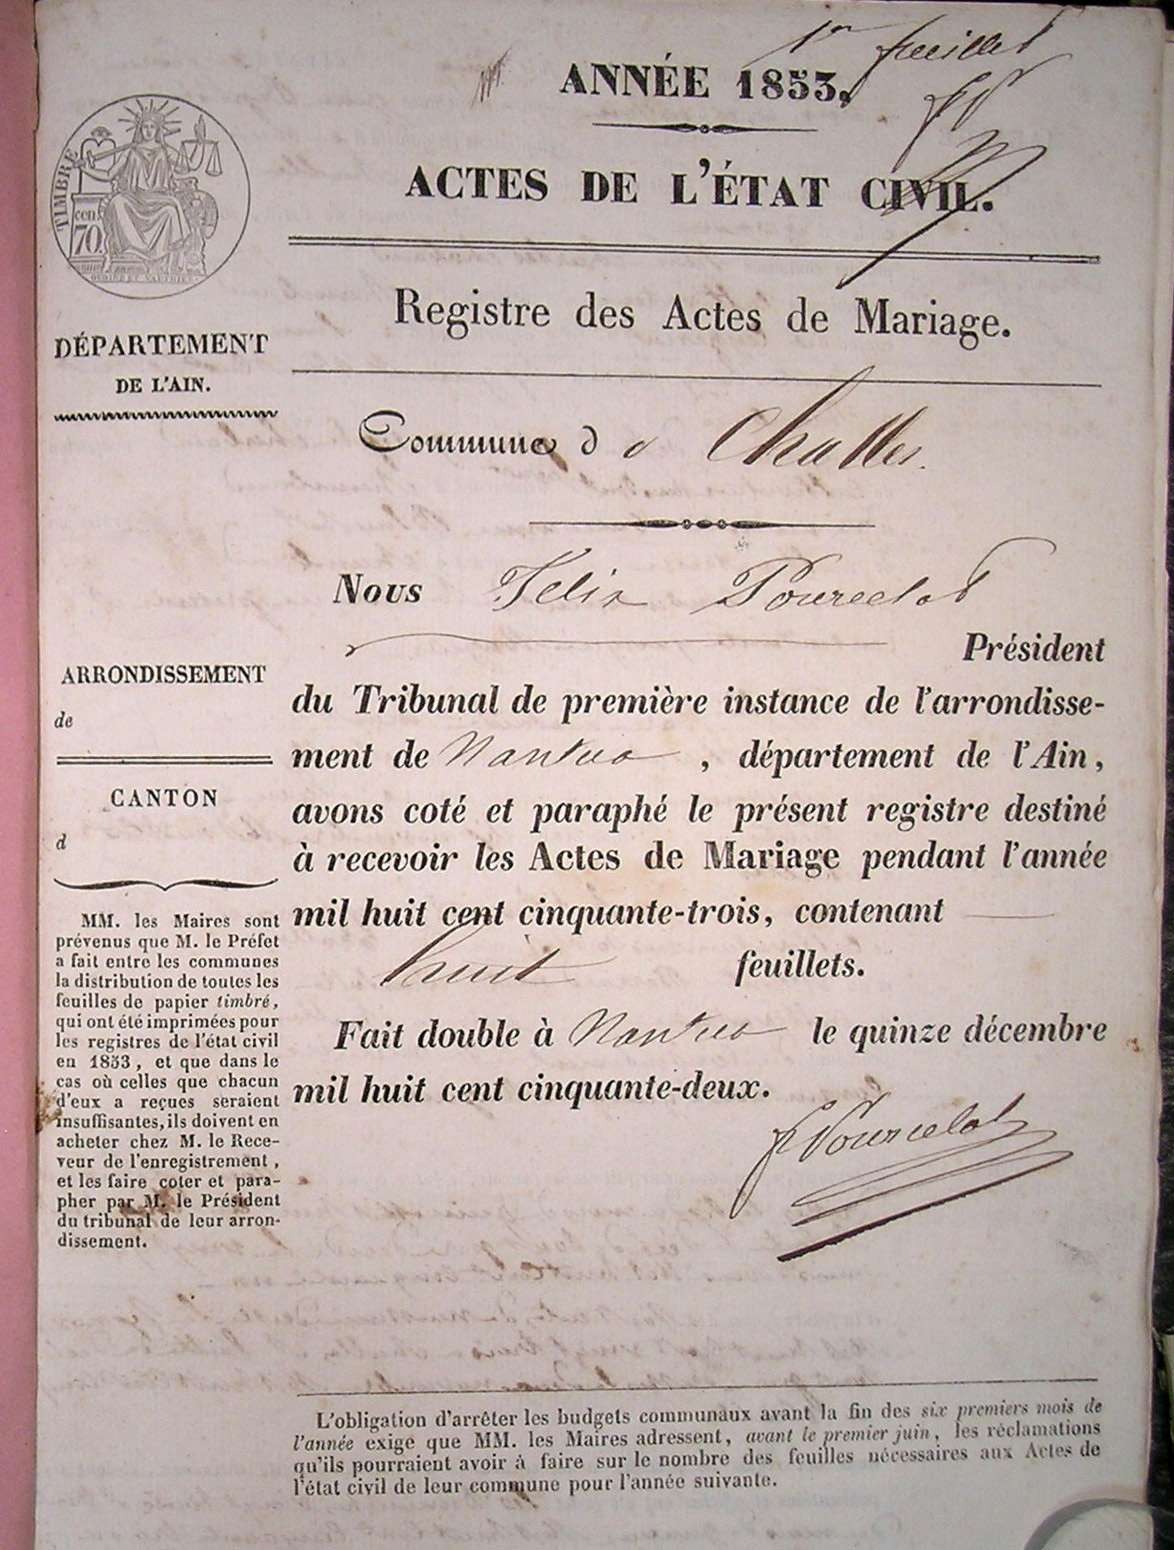 1er feuillet
ANNÉE 1853.
ACTES DE L'ÉTAT CIVIL.
TIMBRE
cen
70
Registre des Actes de Mariage.
DÉPARTEMENT
DE L'AIN.
Commune d e Challes.
Nous Felix Pourcelot
Président
du Tribunal de première instance de l'arrondisse-
ment de Nantua, département de l'Ain,
avons coté et paraphé le présent registre destiné
à recevoir les Actes de Mariage pendant l'année
mil huit cent cinquante-trois, contenant
huit feuillets.
Fait double à Nantua le quinze décembre
mil huit cent cinquante-deux.
F Pourcelot
ARRONDISSEMENT
de
CANTON
d
MM. les Maires sont
prévenus que M. le Préfet
a fait entre les communes
la distribution de toutes les
feuilles de papier timbré,
qui ont été imprimées pour
les registres de l'état civil
en 1853, et que dans le
cas où celles que chacun
d'eux a reçues seraient
insuffisantes, ils doivent en
acheter chez M. le Rece-
veur de l'enregistrement,
et les faire coter et para-
pher par M. le Président
du tribunal de leur arron-
dissement.
L'obligation d'arrêter les budgets communaux avant la fin des six premiers mois de
l'année exige que MM. les Maires adressent, avant le premier juin, les réclamations
qu'ils pourraient avoir à faire sur le nombre des feuilles nécessaires aux Actes de
l'état civil de leur commune pour l'année suivante.